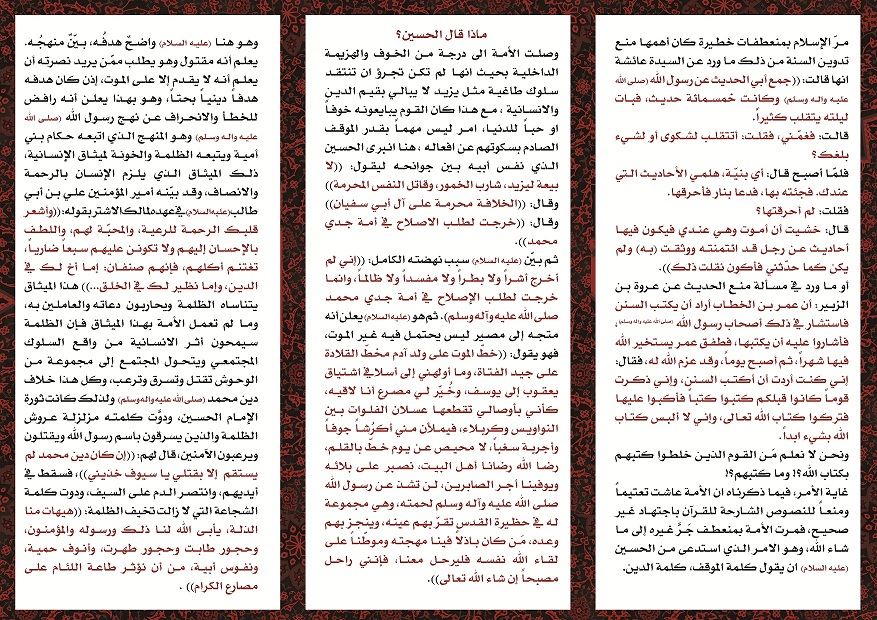 مرّ الإسلام بمنعطفات خطيرة كان أهمها منع
تدوين السنة من ذلك ما ورد عن السيدة عائشة
انها قالت: ((جمع أبي الحديث عن رسول الله (صلى الله
عليه واله وسلم) وكانت خمسمائة حديث، فبات
ليلته يتقلب كثيراً.
قالت: فغمّني، فقلت: أتتقلب لشكوى أو لشيء
بلغك؟
فلمّا أصبح قال: أي بنيّة، هلمي الأحاديث التي
عندك. فجئته بها، فدعا بنار فأحرقها.
فقلت: لم أحرقتها؟
قال: خشيت أن أموت وهي عندي فيكون فيها
أحاديث عن رجل قد ائتمنته ووثقت (به) ولم
يكن كما حدّثني فأكون نقلت ذلك)).
أو ما ورد في مسألة منع الحديث عن عروة بن
الزبير: أن عمر بن الخطاب أراد أن يكتب السنن
فاستشار في ذلك أصحاب رسول الله (صلى الله عليه واله وسلم)،
فأشاروا عليه أن يكتبها، فطفق عمر يستخير الله
فيها شهراً، ثم أصبح يوماً، وقد عزم الله له، فقال:
إني كنت أردت أن أكتب السنن، وإني ذكرت
قوماً كانوا قبلكم كتبوا كتباً فأكبوا عليها
فتركوا كتاب الله تعالى، وإني لا ألبس كتاب
الله بشيء ابداً.
ونحن لا نعلم مَن القوم الذين خلطوا كتبهم
بكتاب الله؟! وما كتبهم؟!
غاية الأمر، فيما ذكرناه ان الأمة عاشت تعتيماً
ومنعاً للنصوص الشارحة للقرآن باجتهاد غير
صحيح، فمرت الأمة بمنعطف جَرَّ غيره إلى ما
شاء الله، وهو الامر الذي استدعى من الحسين
(عليه السلام) ان يقول كلمة الموقف، كلمة الدين.
ماذا قال الحسين؟
وصلت الأمة الى درجة من الخوف والهزيمة
الداخلية بحيث انها لم تكن تجرؤ ان تنتقد
سلوك طاغية مثل يزيد لا يبالي بقيم الدين
والانسانية ، مع هذا كان القوم يبايعونه خوفاً
او حباً للدنيا، امر ليس مهماً بقدر الموقف
الصادم بسكوتهم عن افعاله ، هنا انبرى الحسين
الذي نفس أبيه بين جوانحه ليقول: ((لا
بيعة ليزيد، شارب الخمور، وقاتل النفس المحرمة))
وقال: ((الخلافة محرمة على آل أبي سفيان))
وقال: ((خرجت لطلب الاصلاح في أمة جدي
محمد)).
ثم بيّن (عليه السلام) سبب نهضته الكامل: ((إني لم
أخرج أشراً ولا بطراً ولا مفسداً ولا ظالماً، وانما
خرجت لطلب الإصلاح في أمة جدي محمد
صلى الله عليه وآله وسلم). ثم هو (عليه السلام) يعلن أنه
متجه إلى مصير ليس يحتمل فيه غير الموت،
فهو يقول: ((خطّ الموت على ولد آدم مخطّ القلادة
على جيد الفتاة، وما اولهني إلى أسلافي اشتياق
يعقوب إلى يوسف، وخُيّر لي مصرع أنا لاقيه،
كأني بأوصالي تقطعها عسلان الفلوات بين
النواويس وكربلاء، فيملأن مني أكرُشاً جوفاً
وأجربة سغباً، لا محيص عن يوم خطّ بالقلم،
رضا الله رضانا أهل البيت، نصبر على بلائه
ويوفينا أجر الصابرين، لن تشذ عن رسول الله
صلى الله عليه وآله وسلم لحمته، وهي مجموعة
له في حظيرة القدس تقرّ بهم عينه، وينجز بهم
وعده، مَن كان باذلاً فينا مهجته وموطّناً على
لقاء الله نفسه فليرحل معنا، فإنني راحل
مصبحاً إن شاء الله تعالى)).
وهو هنا (عليه السلام) واضحٌ هدفُه، بيّنٌ منهجُه.
يعلم أنه مقتول وهو يطلب ممّن يريد نصرته أن
يعلم أنه لا يقدم إلا على الموت، إذن كان هدفه
هدفاً دينياً بحتاً، وهو بهذا يعلن أنه رافض
للخطأ والانحراف عن نهج رسول الله (صلى الله
عليه واله وسلم) وهو المنهج الذي اتبعه حكام بني
أمية ويتبعه الظلمة والخونة لميثاق الإنسانية،
ذلك الميثاق الذي يلزم الإنسان بالرحمة
والانصاف، وقد بيّنه أمير المؤمنين علي بن أبي
طالب (عليه السلام) في عهده لمالك الاشتر بقوله: ((وأشعر
قلبك الرحمة للرعية، والمحبّة لهم، واللطف
بالإحسان إليهم ولا تكونن عليهم سبعاً ضارياً،
تغتنم أكلهم، فإنهم صنفان: إما أخ لك في
الدين، وإما نظير لك في الخلق...)) هذا الميثاق
يتناساه الظلمة ويحاربون دعاته والعاملين به،
وما لم تعمل الأمة بهذا الميثاق فإن الظلمة
سيمحون أثر الانسانية من واقع السلوك
المجتمعي ويتحول المجتمع إلى مجموعة من
الوحوش تقتل وتسرق وترعب، وكل هذا خلاف
دين محمد (صلى الله عليه واله وسلم) ولذلك كانت ثورة
الإمام الحسين، ودوَّت كلمته مزلزلة عروش
الظلمة والذين يسرقون باسم رسول الله ويقتلون
ويرعبون الآمنين، قال لهم: ((إن كان دين محمد لم
يستقم إلا بقتلي يا سيوف خذيني))، فسقط في
أيديهم، وانتصر الدم على السيف، ودوت كلمة
الشجاعة التي لا زالت تخيف الظلمة: ((هيهات منا
الذلة، يأبى الله لنا ذلك ورسوله والمؤمنون،
وحجور طابت وحجور طهرت، وأنوف حمية،
ونفوس أبية، من أن نؤثر طاعة اللئام على
مصارع الكرام)) .